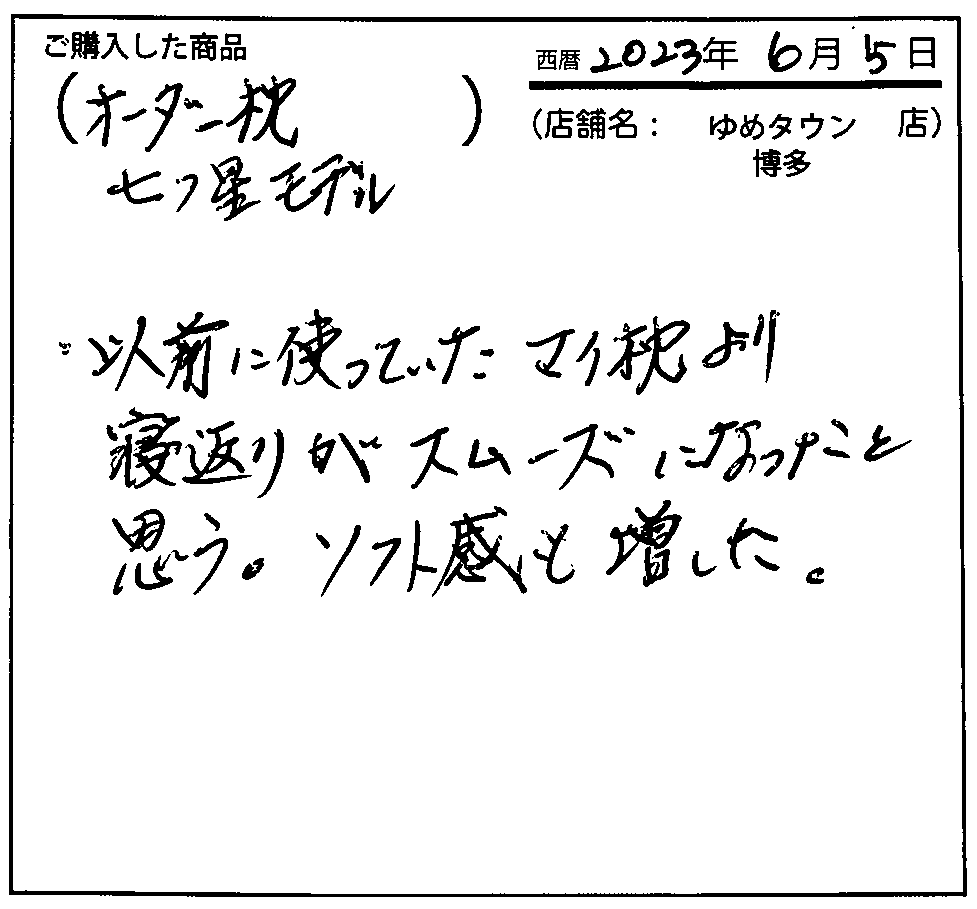 ご購入した商品
西暦 2023年 6月 5日
(オーダー枕 )
(店舗名： ゆめタウン 店)
博多
七つ星モデル
以前に使っていたマイ枕より
寝返りがスムーズになったこと
思う。ソフト感も増した。